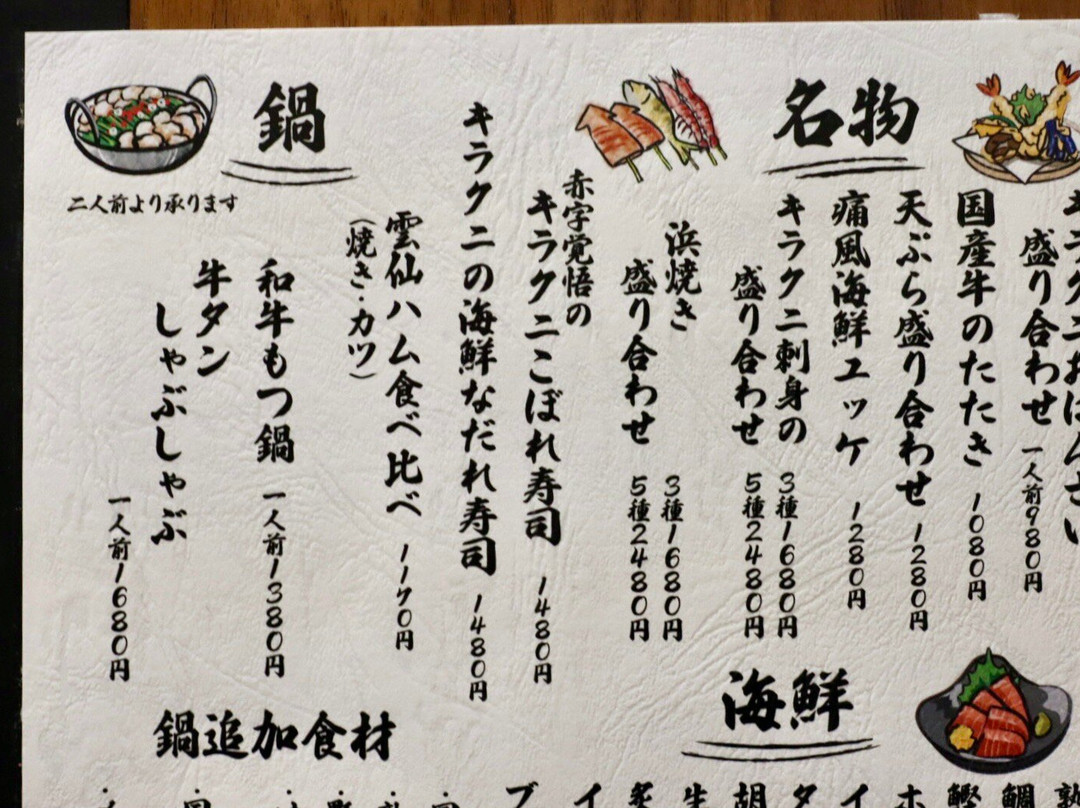 名物
キラクニおばんざい
盛り合わせ
一人前980円
国産牛のたたき
1080円
天ぷら盛り合わせ
1280円
痛風海鮮ユッケ
1280円
キラクニ刺身の
盛り合わせ
3種1680円
5種2480円
浜焼き
盛り合わせ
3種1680円
5種2480円
赤字覚悟の
キラクニこぼれ寿司
1480円
キラクニの海鮮なだれ寿司
1480円
雲仙ハム食べ比べ
(焼き・カツ)
1170円
鍋
二人前より承ります
和牛もつ鍋
一人前1380円
牛タン
しゃぶしゃぶ
一人前1680円
海鮮
鯛
鰹
ホ
イ
タ
胡
生
イ
ブ
鍋追加食材